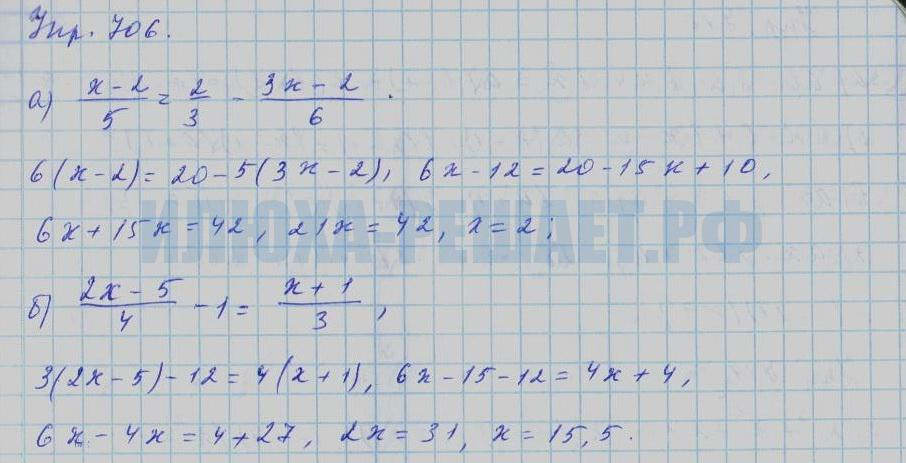 Упр. 706.
а) (x-2)/5 = 2/3 - (3x-2)/6.
6(x-2)=20-5(3x-2), 6x-12=20-15x+10,
ИЛЮХА-РЕШАЕТ.РФ
6x+15x=42, 21x=42, x=2;
б) (2x-5)/4 -1= (x+1)/3,
3(2x-5)-12=4(x+1), 6x-15-12=4x+4,
6x-4x=4+27, 2x=31, x=15,5.